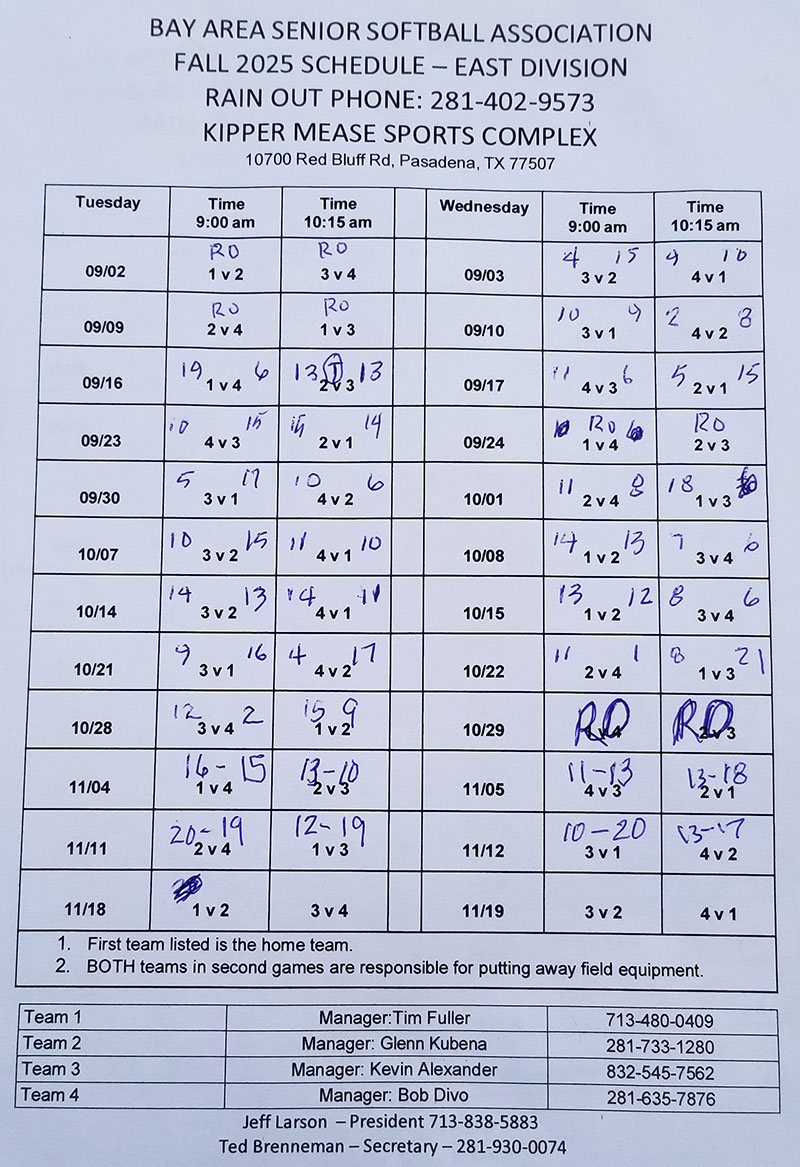 BAY AREA SENIOR SOFTBALL ASSOCIATION
FALL 2025 SCHEDULE – EAST DIVISION
RAIN OUT PHONE: 281-402-9573
KIPPER MEASE SPORTS COMPLEX
10700 Red Bluff Rd, Pasadena, TX 77507
Tuesday Time 9:00 am Time 10:15 am Wednesday Time 9:00 am Time 10:15 am
RO RO 4 15 9 10
09/02 1 v 2 3 v 4 09/03 3 v 2 4 v 1
RO RO 10 9 2 8
09/09 2 v 4 1 v 3 09/10 3 v 1 4 v 2
19 6 13 T 13 11 6 5 15
09/16 1 v 4 2 v 3 09/17 4 v 3 2 v 1
10 15 14 RO RO
09/23 4 v 3 2 v 1 09/24 1 v 4 2 v 3
5 17 10 6 11 8 18
09/30 3 v 1 4 v 2 10/01 2 v 4 1 v 3
10 15 11 10 14 13 7 6
10/07 3 v 2 4 v 1 10/08 1 v 2 3 v 4
14 13 14 11 13 12 8 6
10/14 3 v 2 4 v 1 10/15 1 v 2 3 v 4
9 16 4 17 11 1 8 21
10/21 3 v 1 4 v 2 10/22 2 v 4 1 v 3
12 2 15 9 RO RO
10/28 3 v 4 1 v 2 10/29 1 v 4 2 v 3
16 - 15 13 - 10 11 - 13 13 - 18
11/04 1 v 4 2 v 3 11/05 4 v 3 2 v 1
20 - 19 12 - 19 10 - 20 13 - 17
11/11 2 v 4 1 v 3 11/12 3 v 1 4 v 2
11/18 1 v 2 3 v 4 11/19 3 v 2 4 v 1
1. First team listed is the home team.
2. BOTH teams in second games are responsible for putting away field equipment.
Team 1 Manager:Tim Fuller 713-480-0409
Team 2 Manager: Glenn Kubena 281-733-1280
Team 3 Manager: Kevin Alexander 832-545-7562
Team 4 Manager: Bob Divo 281-635-7876
Jeff Larson – President 713-838-5883
Ted Brenneman – Secretary – 281-930-0074